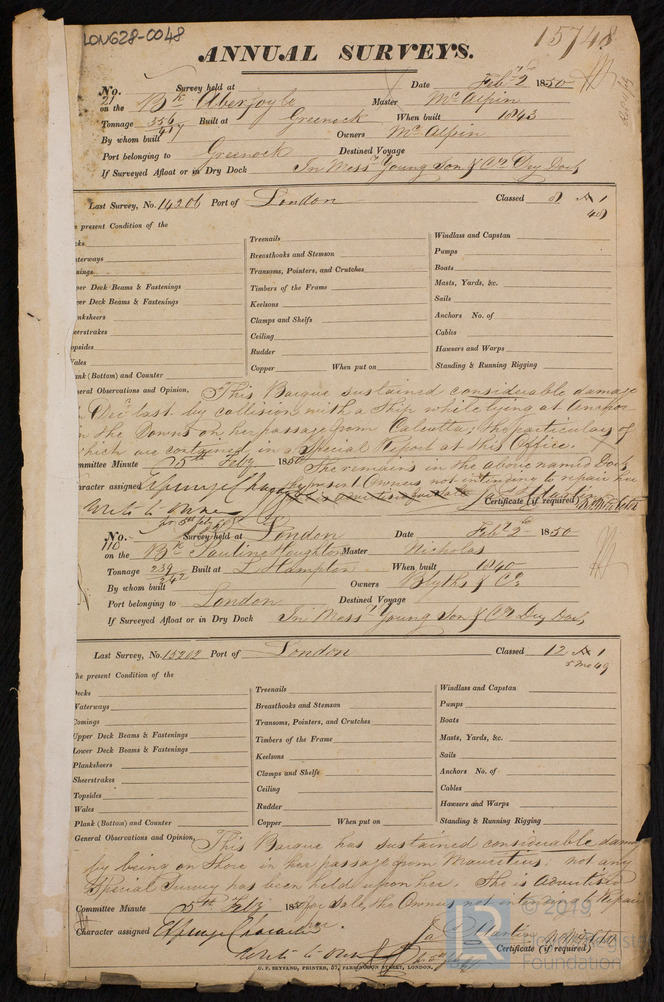 LON628-0048
15748
ANNUAL SURVEYS.
No. 21 Survey held at Date Feby 2 1850
on the Bk Aberfoyle Master McAlpin
Tonnage 356 417 Built at Greenock When built 1843
By whom built Owners McAlpin
Port belonging to Greenock Destined Voyage
If Surveyed Afloat or in Dry Dock In Messrs Young Son & Cos Dry Dock
Last Survey, No. 14206 Port of London Classed A 1
present Condition of the
Treenails
Windlass and Capstan
Breasthooks and Stemson
Pumps
Transoms, Pointers, and Crutches
Boats
per Deck Beams & Fastenings
Timbers of the Frame
Masts, Yards, &c.
wer Deck Beams & Fastenings
Keelsons
Sails
anksheers
Clamps and Shelfs
Anchors No. of
eerstrakes
Ceiling
Cables
opsides
Rudder
Hawsers and Warps
Wales
Copper When put on
Standing & Running Rigging
ank (Bottom) and Counter
neral Observations and Opinion, This Barque sustained considerable damage
Decr last by collision with a Ship while lying at anchor
in the Downs on her passage from Calcutta; the particulars of
which are contained in a Special Report at this Office.
mmittee Minute 5th Feby 1850 She remains in the above named Dock
haracter assigned present Owners not intending to repair her
Write to Owner Certificate (if required)
No. 110 Survey held at London Date Feby 2 1850
on the Bk Pauline Houghton Master Nicholas
Tonnage 239 242 Built at L Hampton When built 1840
By whom built Owners Blyths & Co
Port belonging to London Destined Voyage
If Surveyed Afloat or in Dry Dock In Messrs Young Son & Cos Dry Dock
Last Survey, No. 15212 Port of London Classed 12 A 1
5 Mo 49
he present Condition of the
Decks
Treenails
Windlass and Capstan
Waterways
Breasthooks and Stemson
Pumps
Comings
Transoms, Pointers, and Crutches
Boats
Upper Deck Beams & Fastenings
Timbers of the Frame
Masts, Yards, &c.
Lower Deck Beams & Fastenings
Keelsons
Sails
Planksheers
Clamps and Shelfs
Anchors No. of
Sheerstrakes
Ceiling
Cables
Topsides
Rudder
Hawsers and Warps
Wales
Copper When put on
Standing & Running Rigging
Plank (Bottom) and Counter
General Observations and Opinion, This Barque has sustained considerable damage
by being on Shore in her passage from Mauritius. not any
Special Survey has been held upon her. She is advertised
Committee Minute 5th Feby 1850 for Sale, the Owners not intending to Repair
Character assigned her. Martin
Write to Owner Certificate (if required)
G. F. SEYFANG, PRINTED, 57, FARRINGDON STREET, LONDON.
© 2019
Foundation